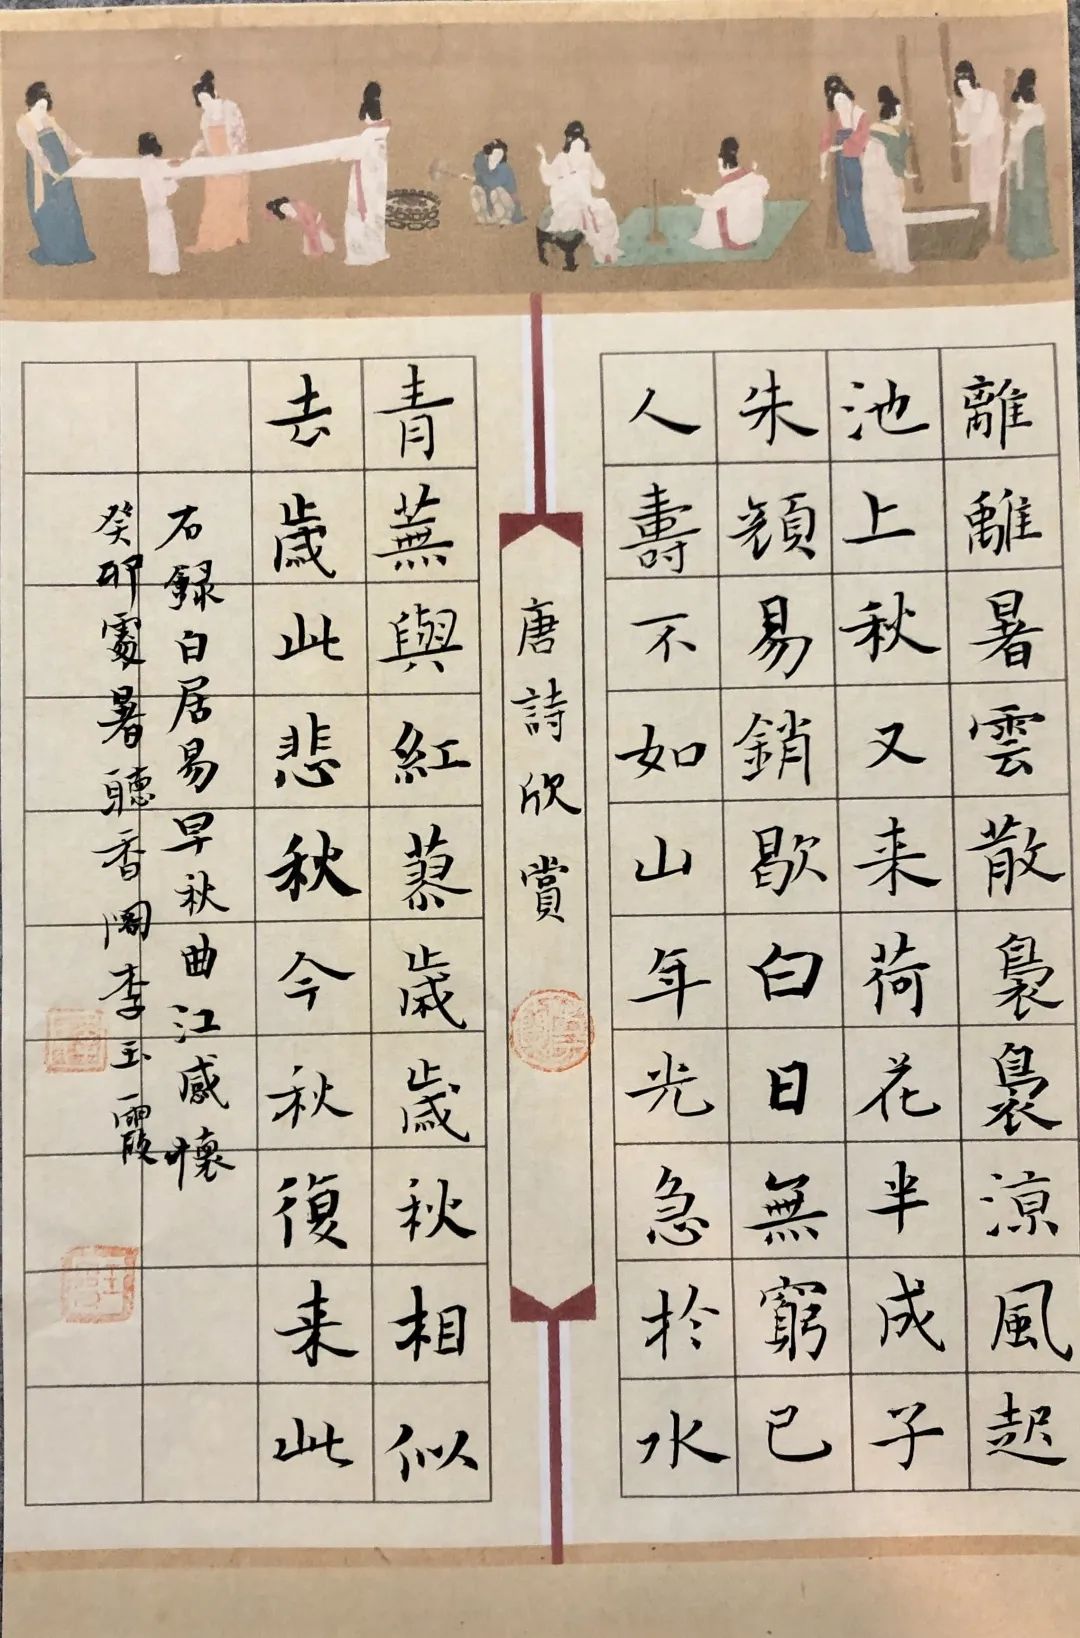 離離暑雲散裊裊涼風起
池上秋又来荷花半成子
朱顏易銷歇白日無窮已
人壽不如山年光急於水
唐詩欣賞
青蕪與紅蓼歲歲秋相似
去歲此悲秋今秋復来此
右録白居易早秋曲江感懷
癸卯處暑聽香閣李玉霞